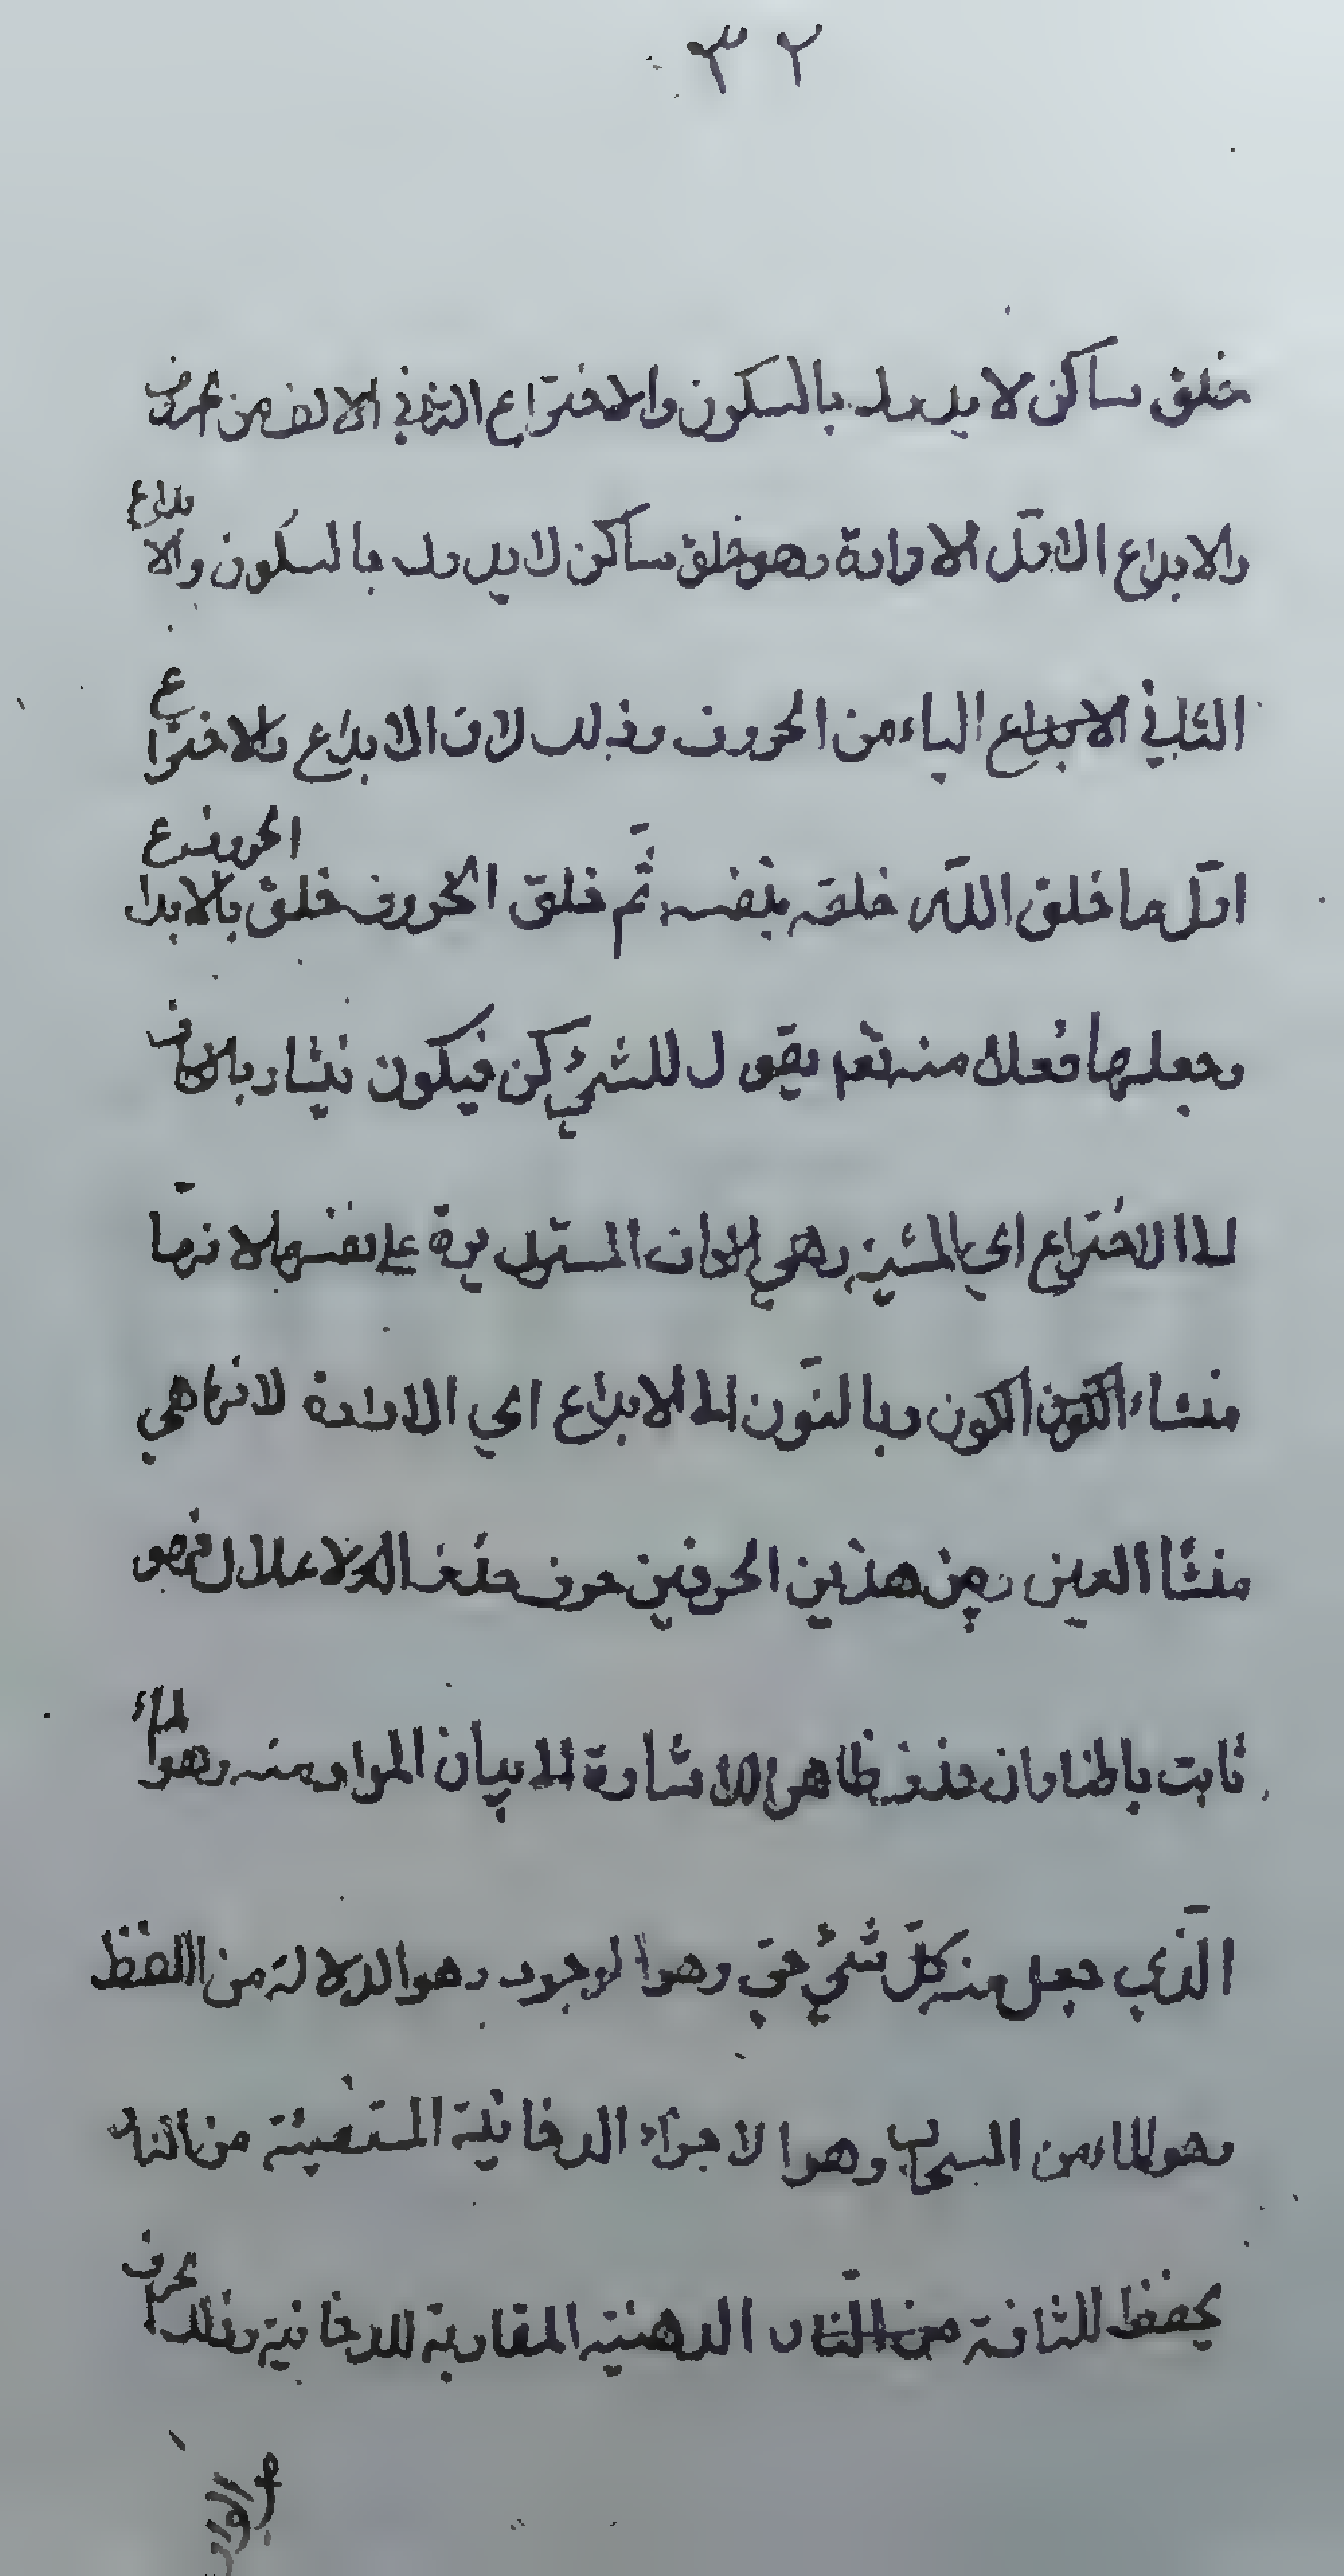 ٣٢
خلق ساكن لا يدرك بالسكون والاختراع الثاني الالف من الحروف
والابداع الاوّل الارادة وهو خلق ساكن لا يدرك بالسكون والابداع
الثاني الباء من الحروف وذلك لان الابداع والاختراع
اوّل ما خلق اللّه خلقه بنفسه ثمّ خلق الحروف خلق بالابداع
وجعلها فعلا منه يقول للشيء كن فيكون فيشار بالكاف
الى الاختراع اي المشية وهي الكاف المستديرة على نفسها لانّها
منشاء الكون وبالنّون الى الابداع اي الارادة لانها هي
منشأ العين وبين هذين الحرفين حرف حذف للاعلال فهو
ثابت باطنا وان حذف ظاهرا للاشارة الى بيان المراد منه وهو الماء
الّذي جعل منه كلّ شيء حيّ وهو الوجود وهو الدلالة من اللفظ
وهو الماء من السحاب وهو الاجزاء الدخانية المستضيئة من النار
الدهنية المقاربة للدخانية وذلك الحرف